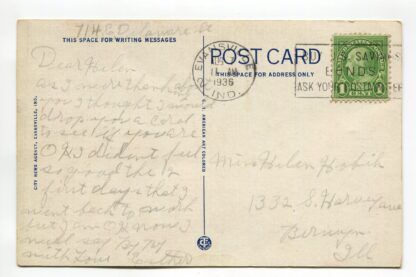 714 E D
THIS SPACE FOR WRITING MESSAGES
Dear Helen
as I more then
you I thought I would
drop you a card
to see if you are
O.K I dident feel
so good the 2
first days that I
went back to work
but I am O.K now I
will say By By
with Love Esther
CITY NEWS AGENCY, EVANSVILLE, IND.
C.T. AMERICAN ART COLORED
POST CARD
THIS SPACE FOR ADDRESS ONLY
EVANSVILLE
11 AM
1936
IND.
BUY U.S. SAVINGS
BONDS
ASK YOUR POSTMASTER
1 CENT 1
Miss Helen Hobik
1332 S. Harvey ave
Berwyn
Ill